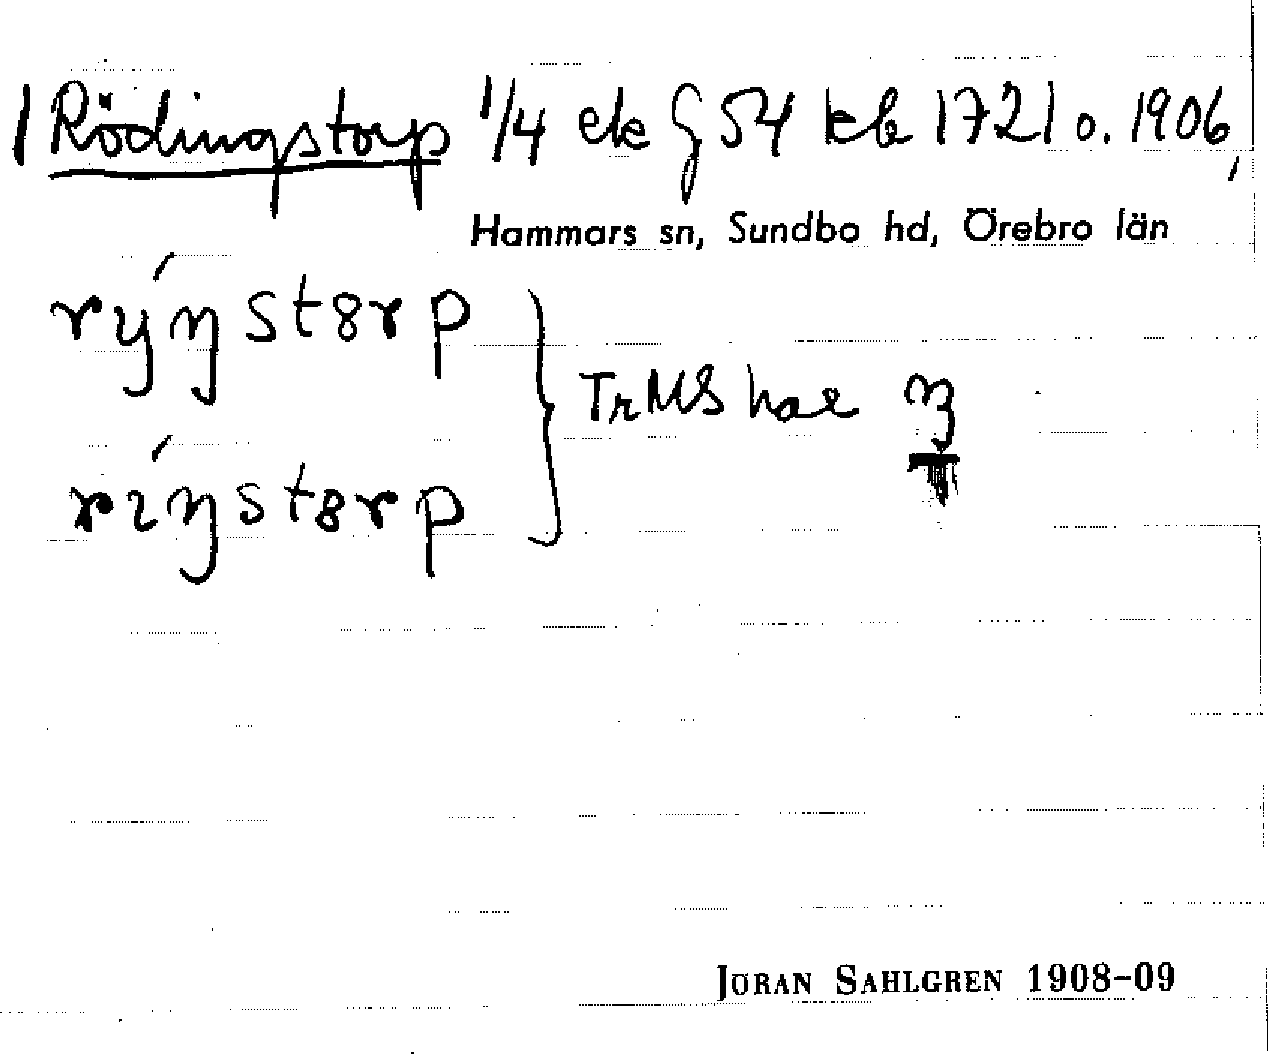 1 Rödingstorp 1/4 ek G 54 kb 1721 o. 1906,
Hammars sn, Sundbo hd, Örebro län
rýŋst8rp
TrMS har
rɩ́ŋst8rp
JÖRAN SAHLGREN 1908-09